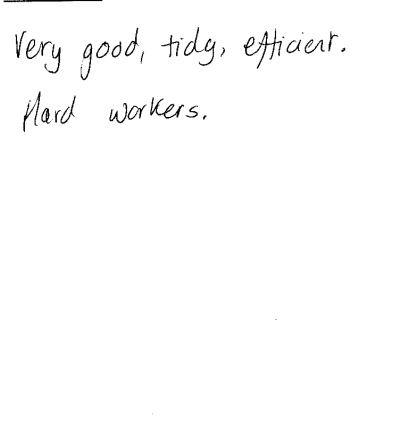 Very good, tidy, efficient.
Hard workers.